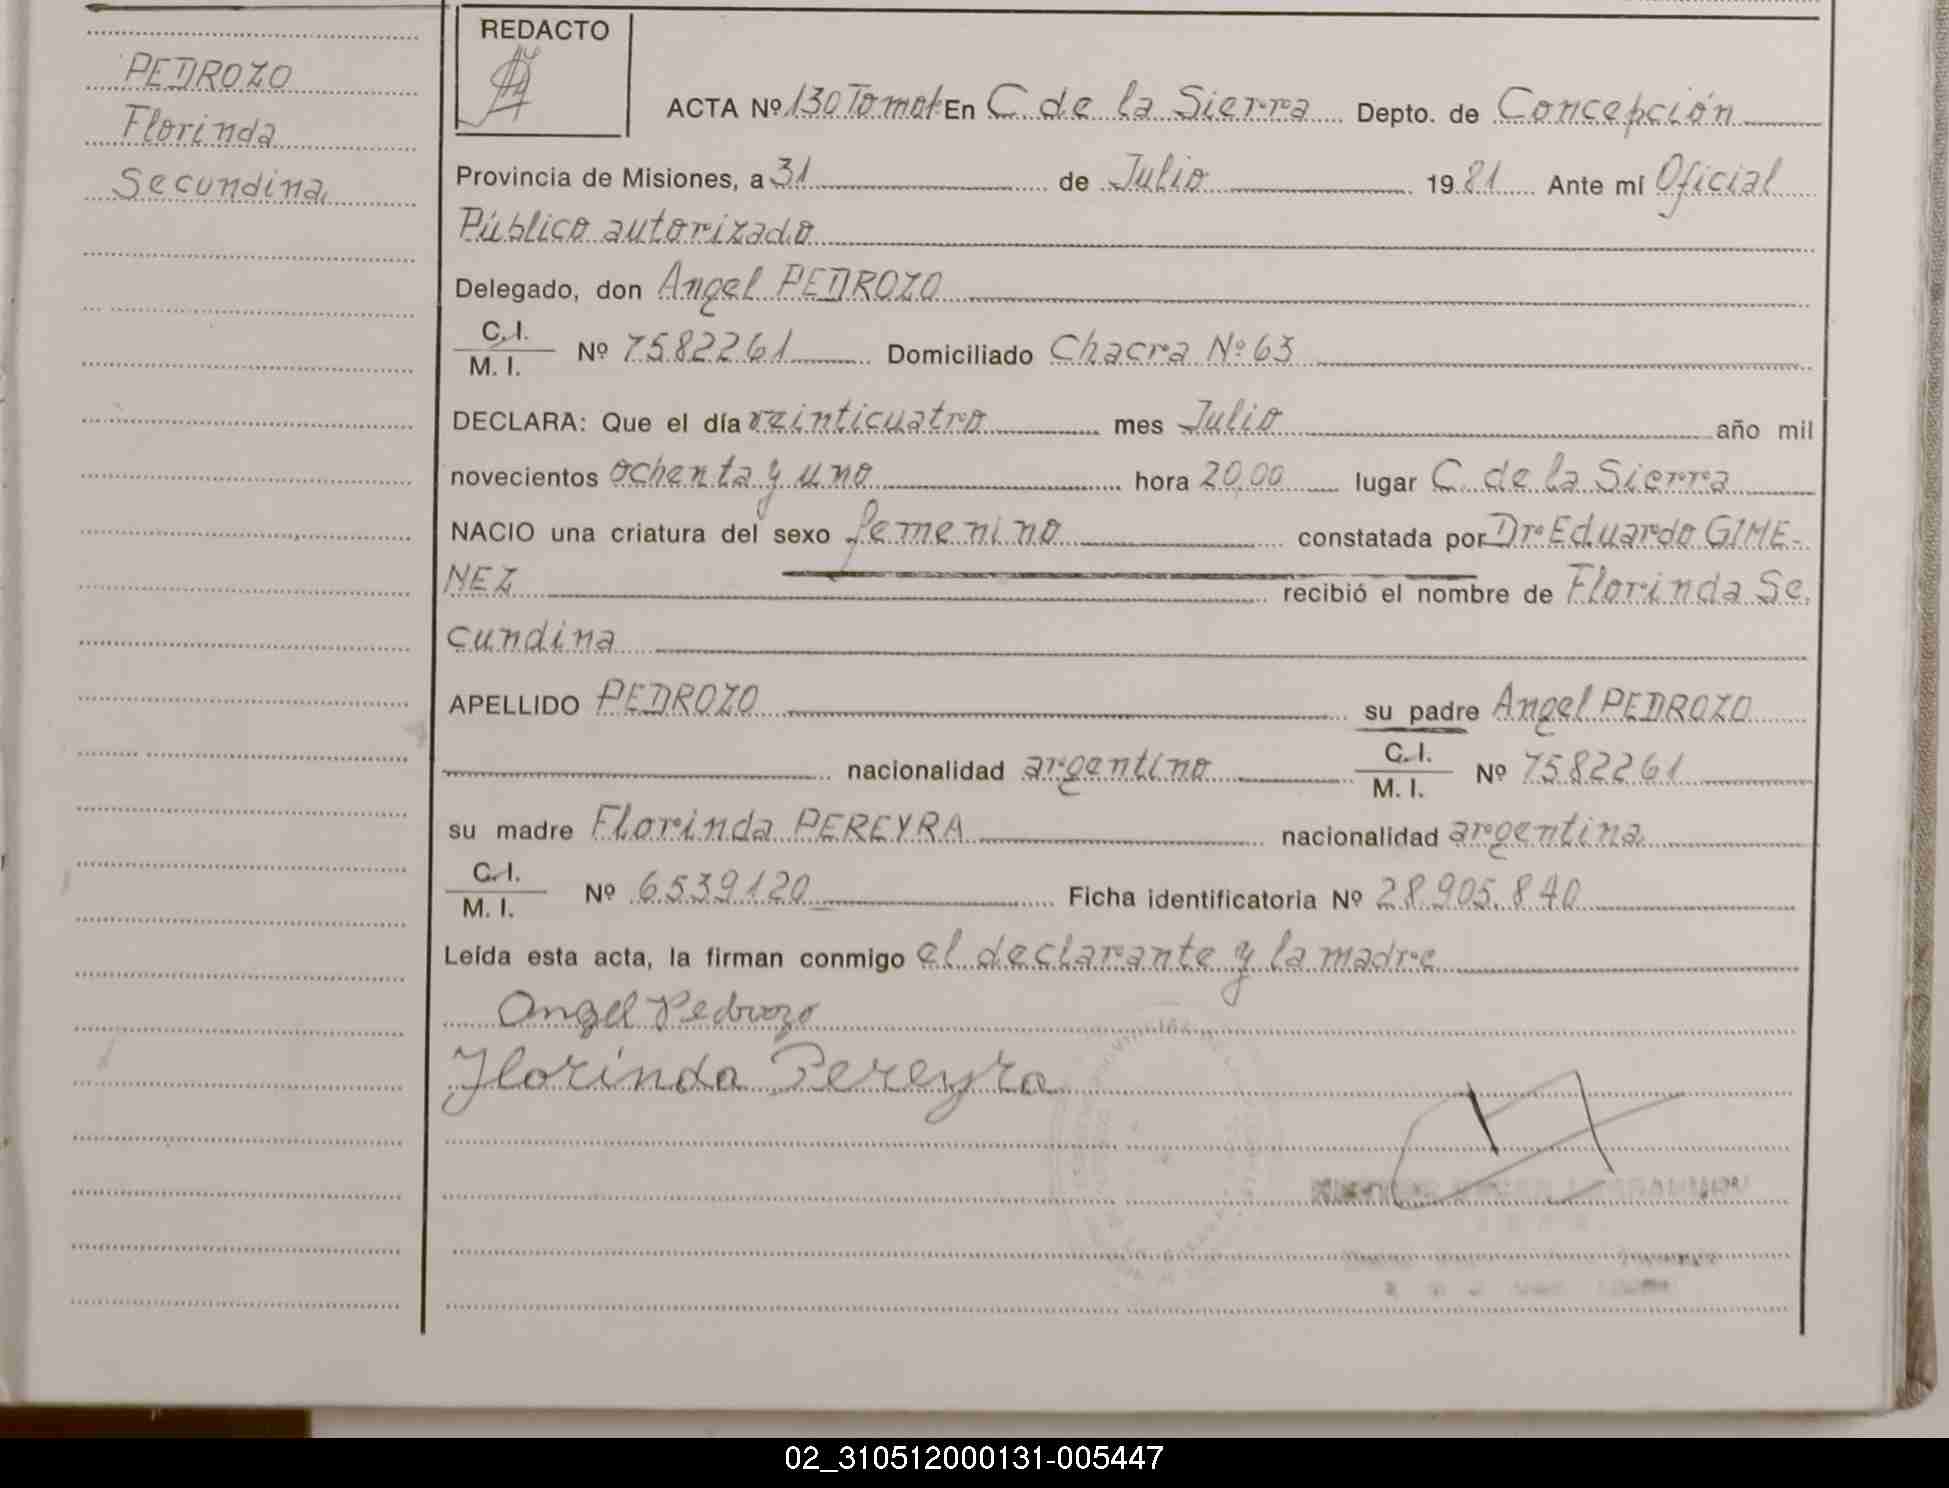 PEDROZO
Florinda
Secundina
REDACTO
ACTA Nº 130 Tomo I En C. de la Sierra Depto. de Concepción
Provincia de Misiones, a 31 de Julio 1981 Ante mí Oficial
Público autorizado
Delegado, don Angel PEDROZO
C.I.
M. I. Nº 7582261 Domiciliado Chacra Nº 63
DECLARA: Que el día veinticuatro mes Julio año mil
novecientos ochenta y uno hora 20,00 lugar C. de la Sierra
NACIO una criatura del sexo femenino constatada por Dr. Eduardo GIME-
NEZ recibió el nombre de Florinda Se.
cundina
APELLIDO PEDROZO su padre Angel PEDROZO
nacionalidad argentino C.I. M. I. Nº 7582261
su madre Florinda PEREYRA nacionalidad argentina
C.I.
M. I. Nº 6539120 Ficha identificatoria Nº 28.905.840
Leída esta acta, la firman conmigo el declarante y la madre
Angel Pedrozo
Florinda Pereyra
02_310512000131-005447